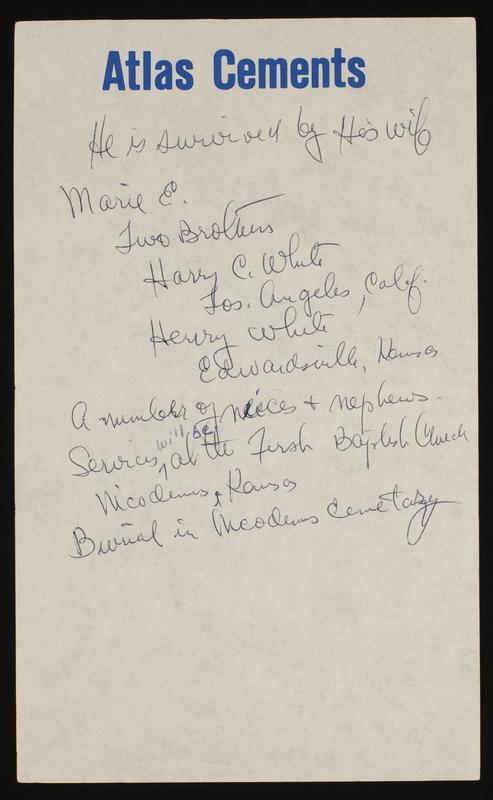 Atlas Cements
He is survived by His wife
Marie E.
Two Brothers
Harry C. White
Los. Angeles, Calif.
Henry White
Edwardsville, Kansas
A number of nieces + nephews.
Services will be at the First Baptist Church
Nicodemus, Kansas
Burial in Nicodemus Cemetary